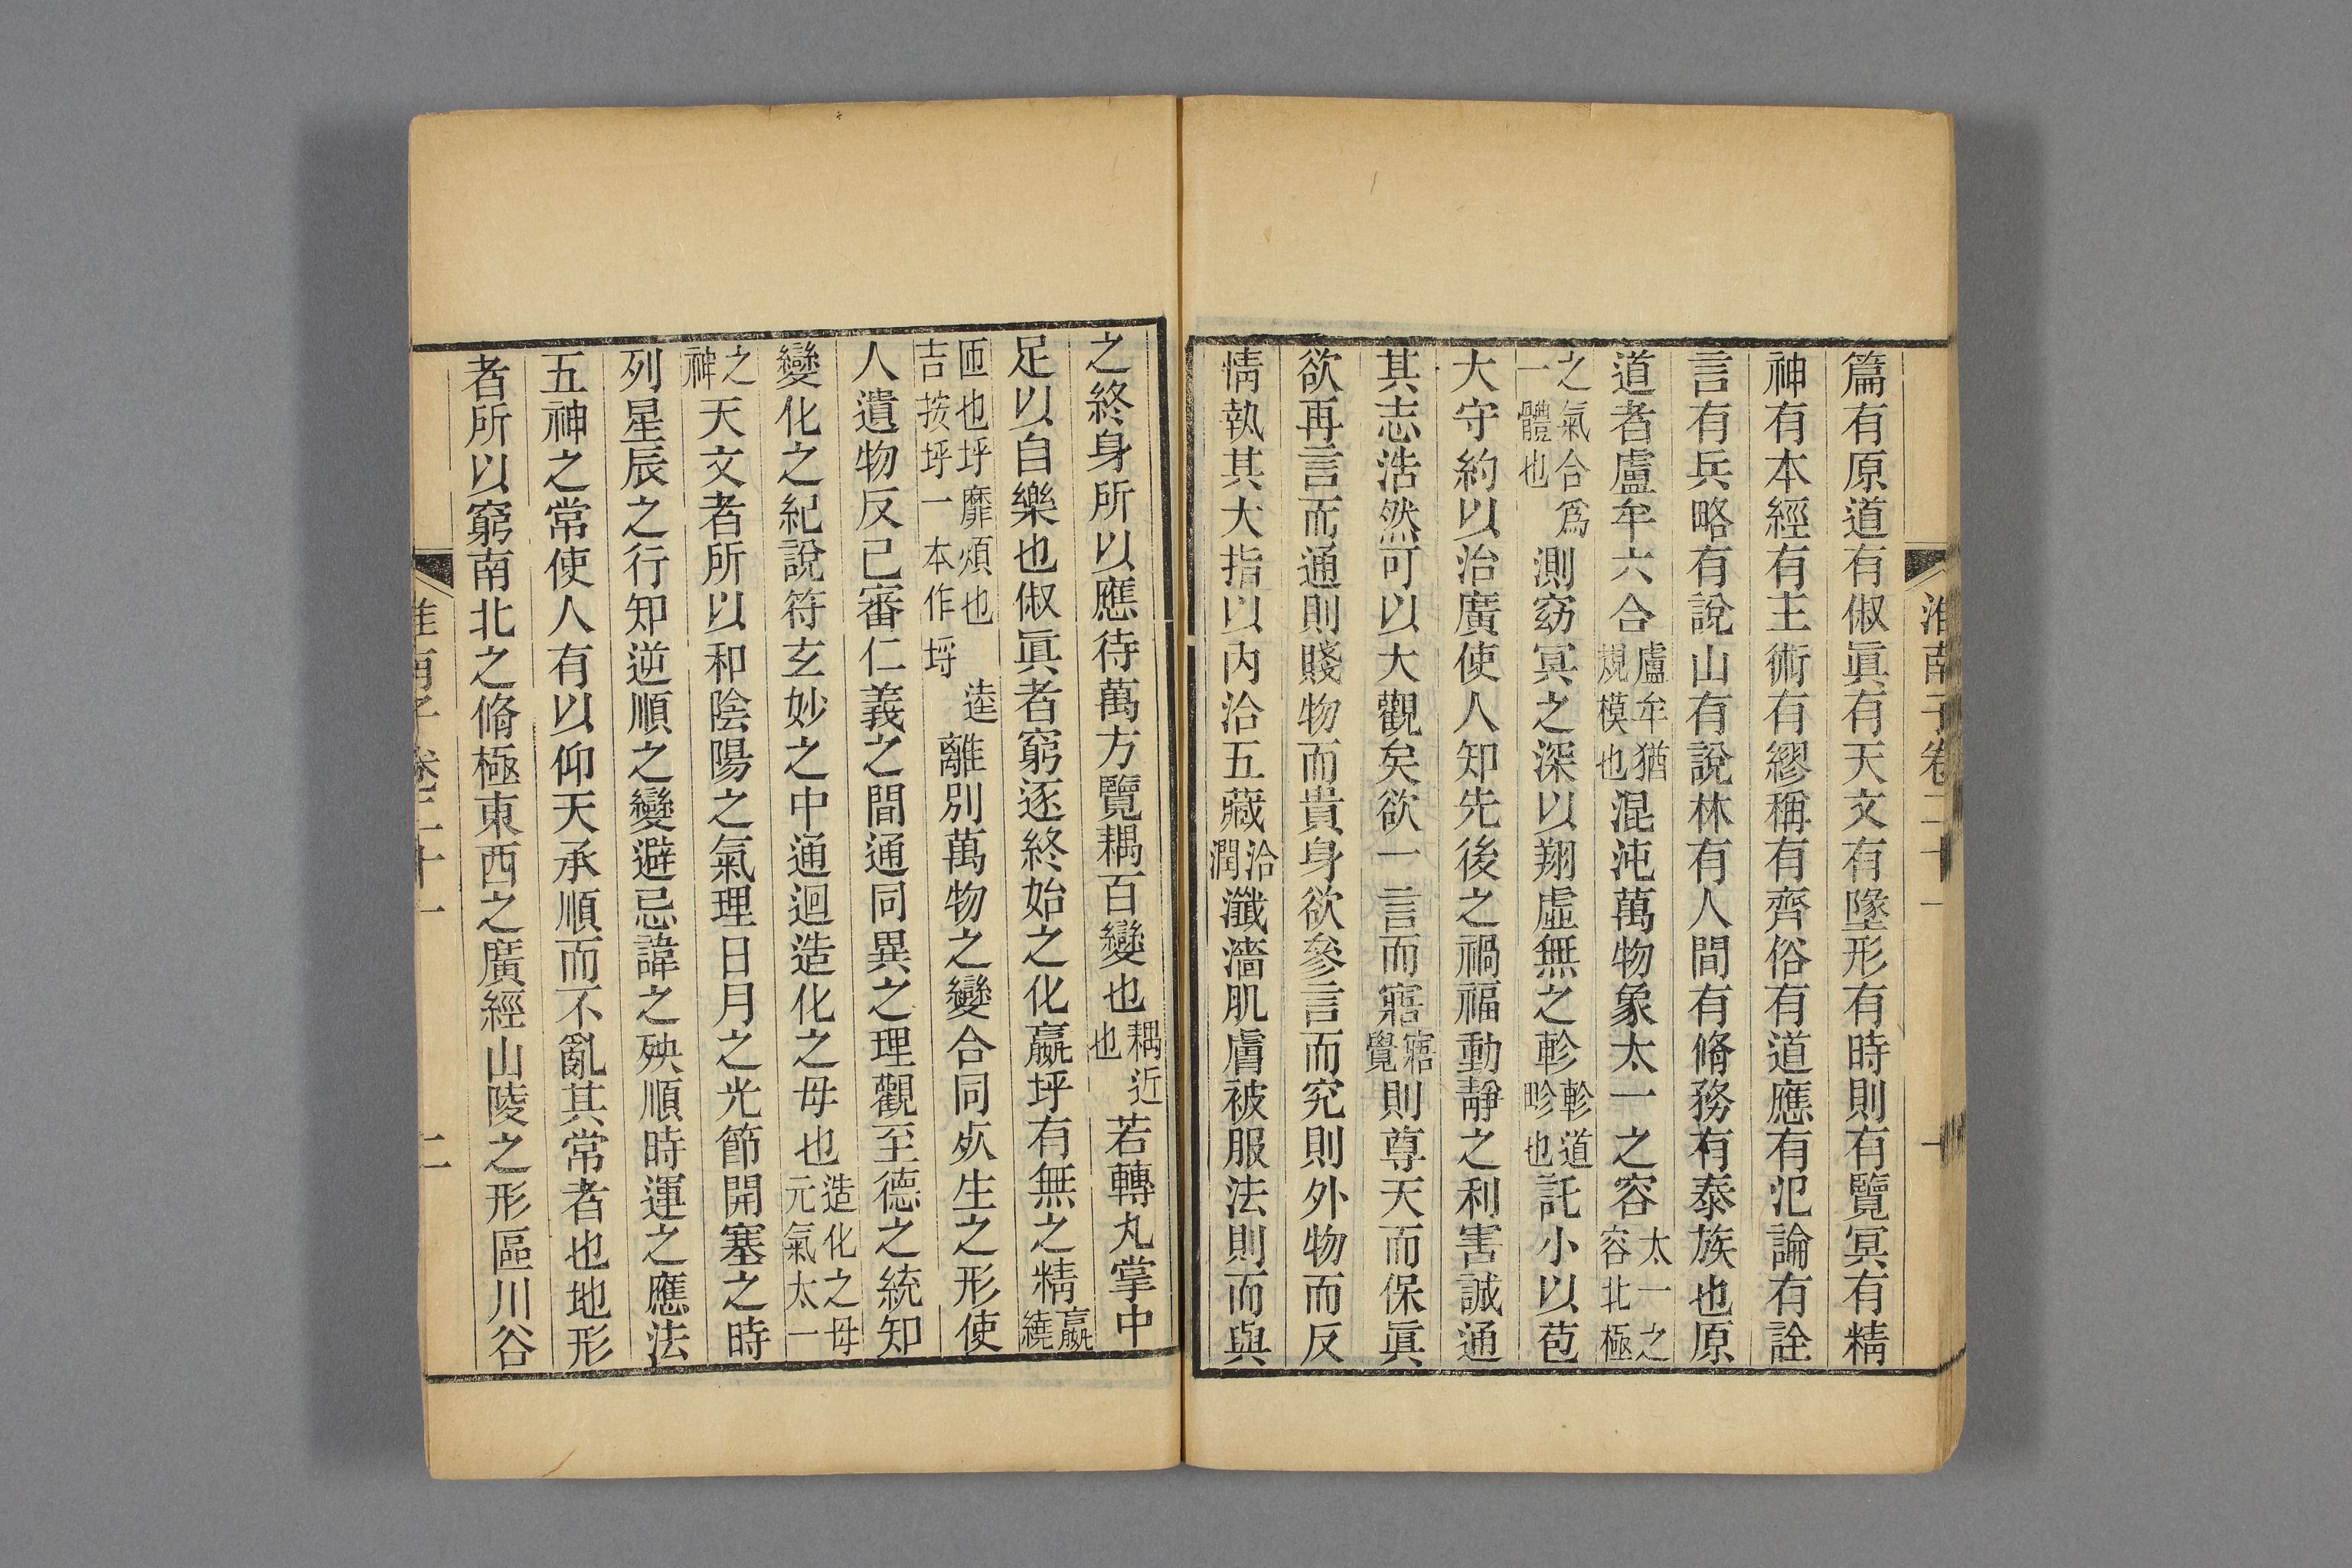 淮南子卷二十一
篇有原道有俶眞有天文有墬形有時則有覽冥有精
神有本經有主術有繆稱有齊俗有道應有氾論有詮
言有兵略有說山有說林有人間有脩務有泰族也原
道者盧牟六合盧牟猶規模也混沌萬物象太一之容太一之容北極
之氣合爲一體也測窈冥之深以翔虛無之軫軫道畛也託小以苞
大守約以治廣使人知先後之禍福動靜之利害誠通
其志浩然可以大觀矣欲一言而寤寤覺則尊天而保眞
欲再言而通則賤物而貴身欲參言而究則外物而反
情執其大指以內洽五藏洽潤瀸濇肌膚被服法則而與
之終身所以應待萬方覽耦百變也耦近也若轉丸掌中
足以自樂也俶眞者窮逐終始之化嬴垀有無之精嬴繞
匝也垀靡煩也吉按垀一本作埒離別萬物之變合同死生之形使
人遺物反己審仁義之間通同異之理觀至德之統知
變化之紀說符玄妙之中通迴造化之母也造化之母元氣太一
之神天文者所以和陰陽之氣理日月之光節開塞之時
列星辰之行知逆順之變避忌諱之殃順時運之應法
五神之常使人有以仰天承順而不亂其常者也地形
者所以窮南北之脩極東西之廣經山陵之形區川谷
淮南子卷二十一 二